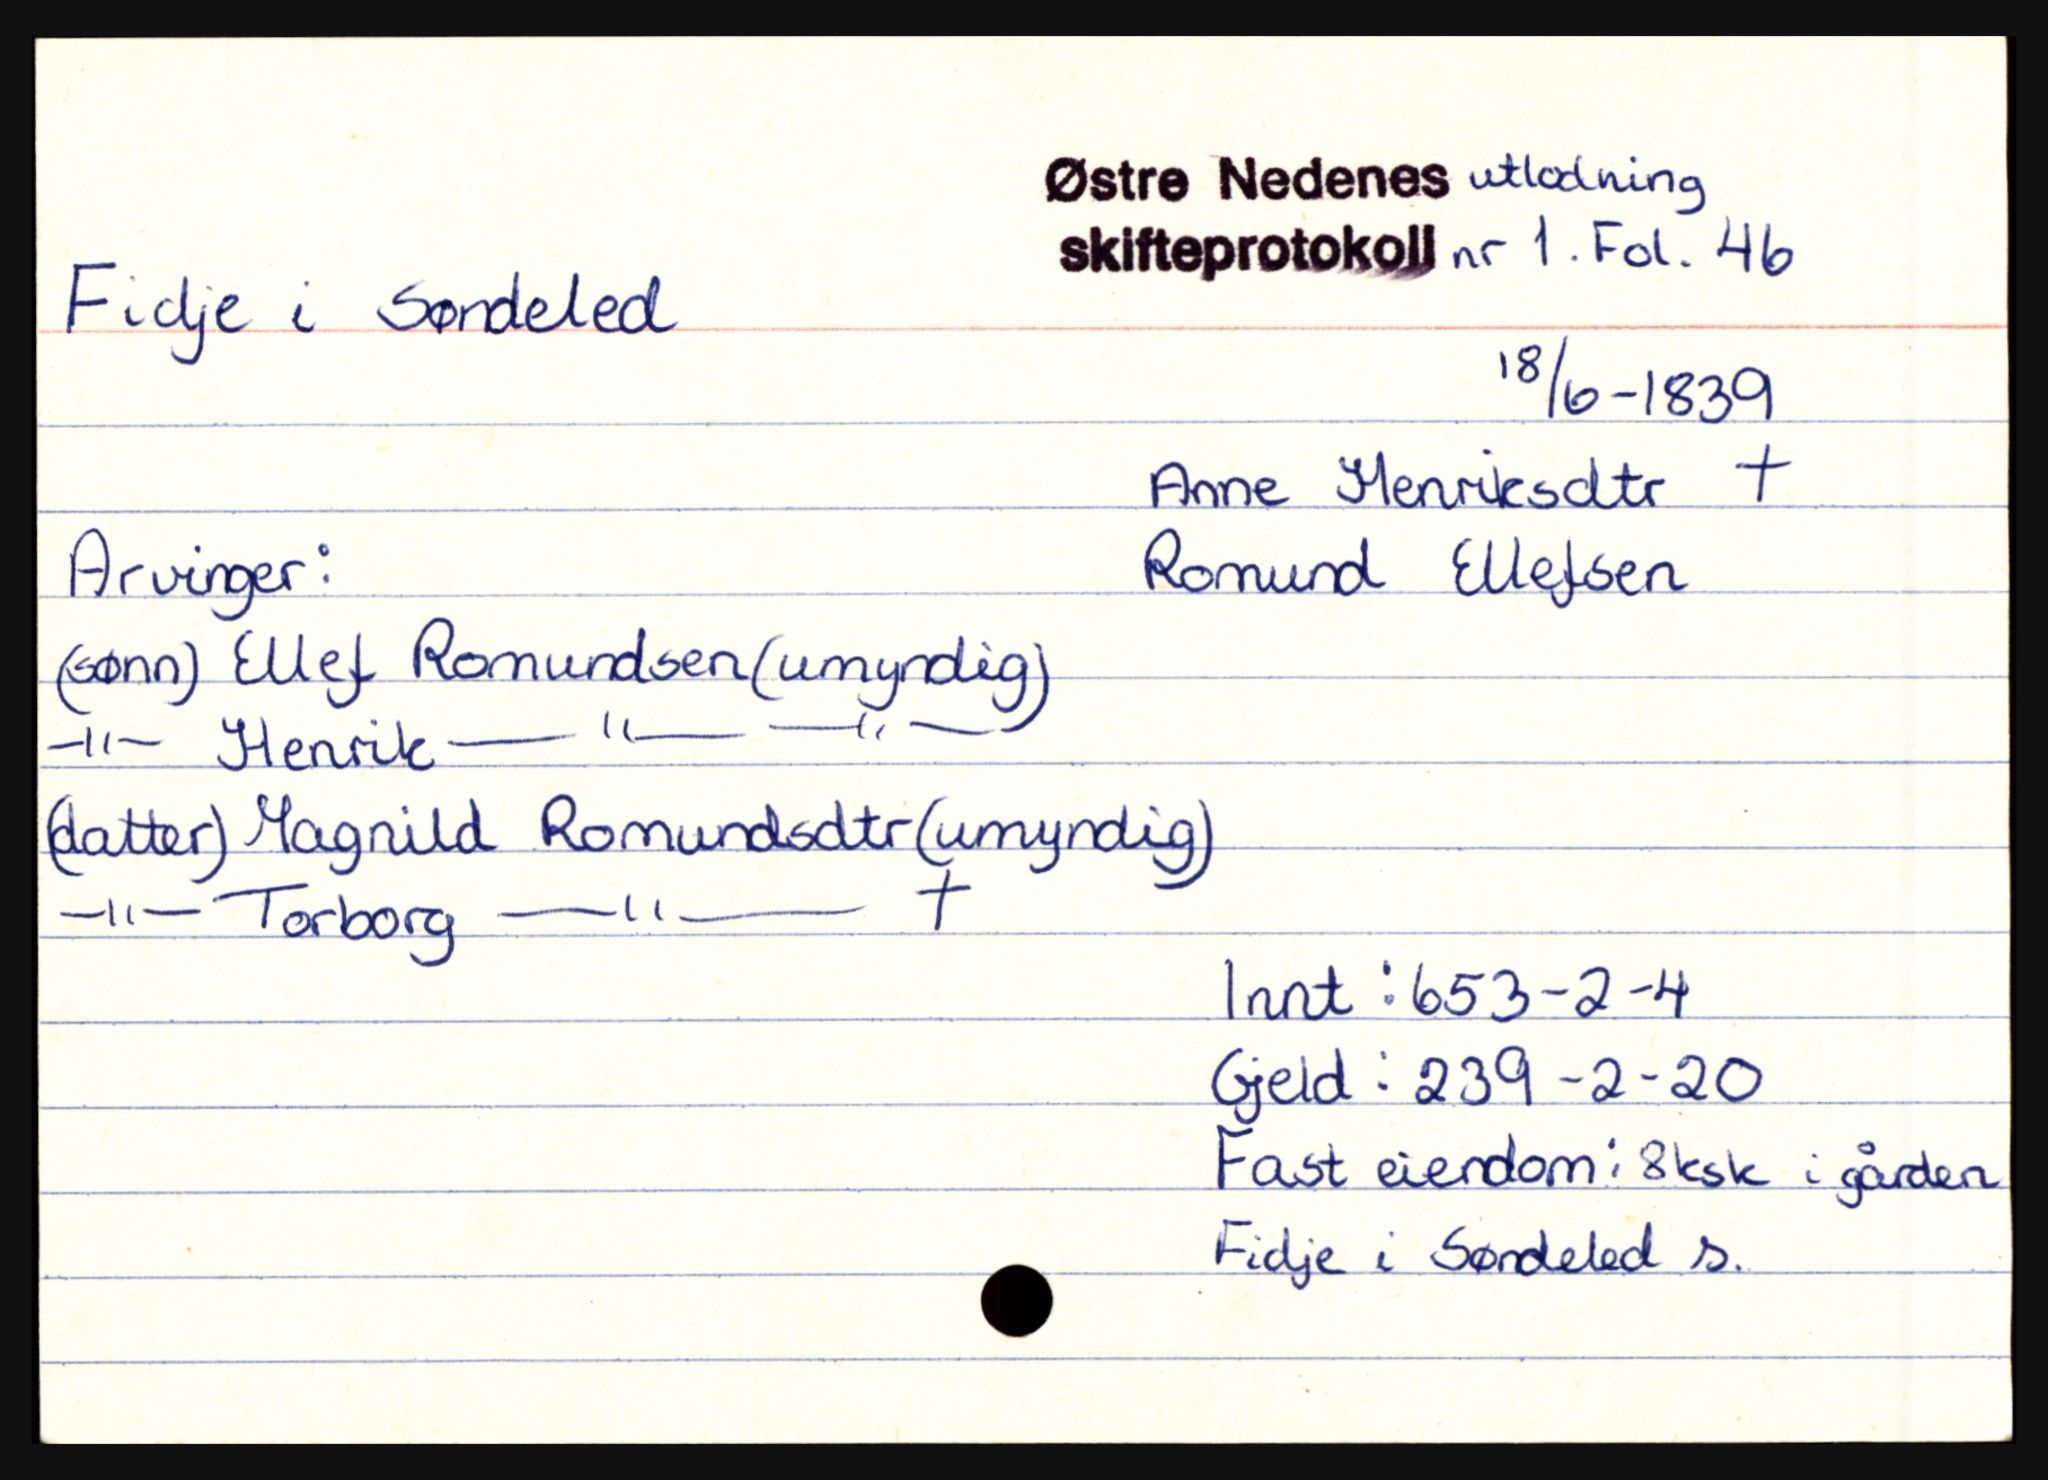 Østre Nedenes utlodning
skifteprotokoll nr 1. Fol. 46
Fidje i Søndeled
18/6-1839
Anne Henriksdtr †
Arvinger:
Romund Ellefsen
(sønn) Ellef Romundsen (umyndig)
—"— Henrik —"— —"—
(datter) Magnild Romundsdtr (umyndig)
—"— Torborg —"— †
Innt: 653-2-4
Gjeld: 239-2-20
Fast eiendom: 8ksk i gården
Fidje i Søndeled s.